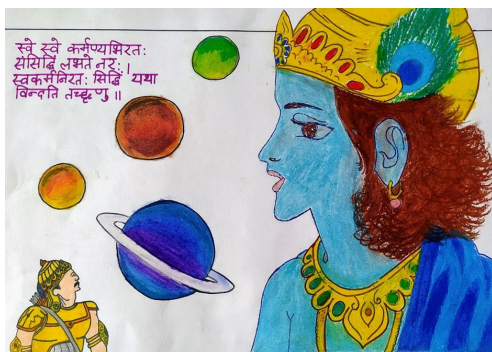 स्वे स्वे कर्मण्यभिरतः
संसिद्धिं लभते नरः।
स्वकर्मनिरतः सिद्धिं यथा
विन्दति तच्छृणु॥